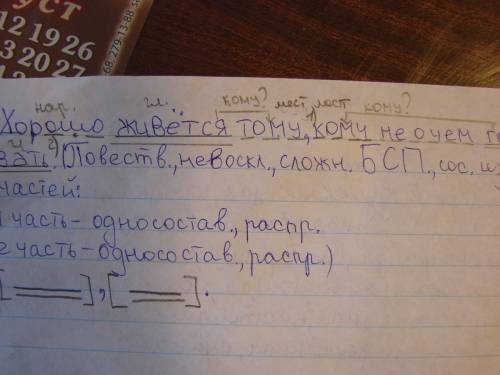 УСТ
12 19 26
13 20 27
68-279-13-88
нар. гл. кому? мест. мест кому?
Хорошо живётся тому, кому не о чем
зать. (Повеств., невоскл., сложн. БСП., сос. из
частей:
часть - односостав., распр.
часть - односостав., распр.)
[ ], [ ].